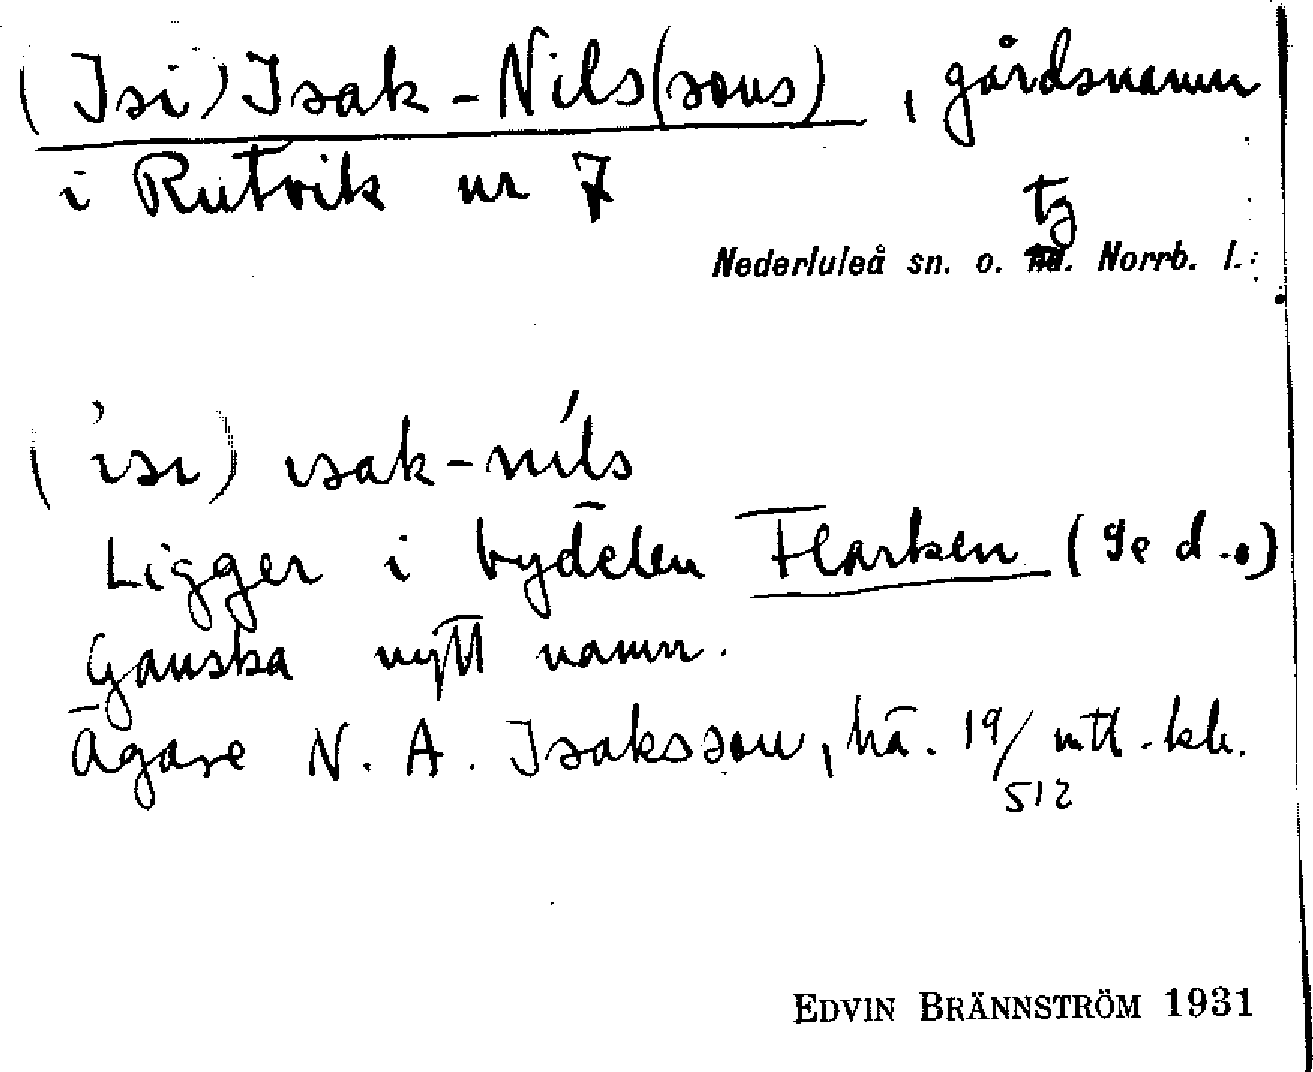 (Isi) Isak-Nils(sons), gårdsnamn
i Rutvik nr 7
tg
Nederluleå sn. o. hd. Norrb. l.
(ˈısı) ısak-níls
Ligger i bydelen Flarken (se d.o)
Ganska nytt namn.
Ägare N. A. Isaksson, hä. 19/512 mtl. kr.
EDVIN BRÄNNSTRÖM 1931